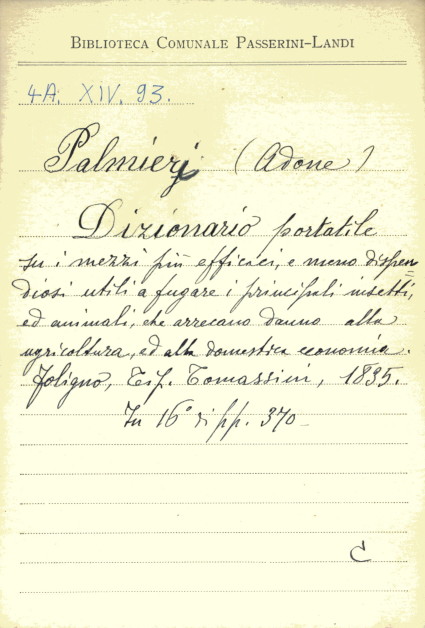 BIBLIOTECA COMUNALE PASSERINI-LANDI
4A. XIV. 93.
Palmieri (Adone)
Dizionario portatile
su i mezzi più efficaci, e meno dispen=
diosi utili a fugare i principali insetti,
ed animali, che arrecano danno alla
agricoltura, ed alla domestica economia.
Foligno, Tip. Tomassini, 1835.
In 16° di pp. 370
C